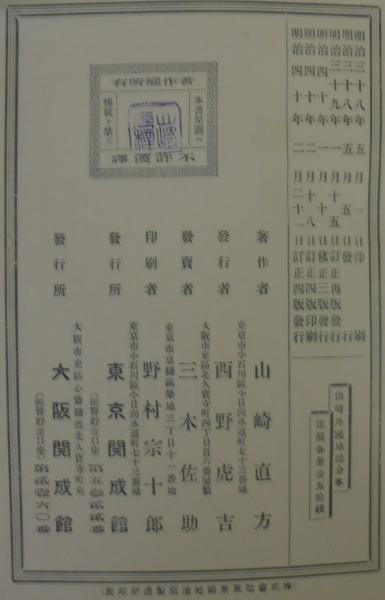 明治三十八年五月一日印刷
明治三十八年五月五日發行
明治三十九年一月十五日訂正再版發行
明治四十年一月十日修正三版發行
明治四十年二月十八日訂正四版印刷
明治四十年二月二十一日訂正四版發行
山崎外國地誌分本
定價各册金五拾錢
著作權所有
本書原圖ハ
轉載ヲ禁ス
不許漢譯
著作者 山崎直方
東京市小石川區小日向水道町七十三番地
發行者 西野虎吉
大阪市東區北久寶寺町四丁目百六番屋敷
發賣者 三木佐助
東京市京橋區築地三丁目十一番地
印刷者 野村宗十郎
東京市小石川區小日向水道町七十三番地
發行所 東京開成館
(振替貯金口座)第五參貳貳番
大阪市東區心齋橋通北久寶寺町角
發行所 大阪開成館
(振替貯金口座)第貳壹六〇番